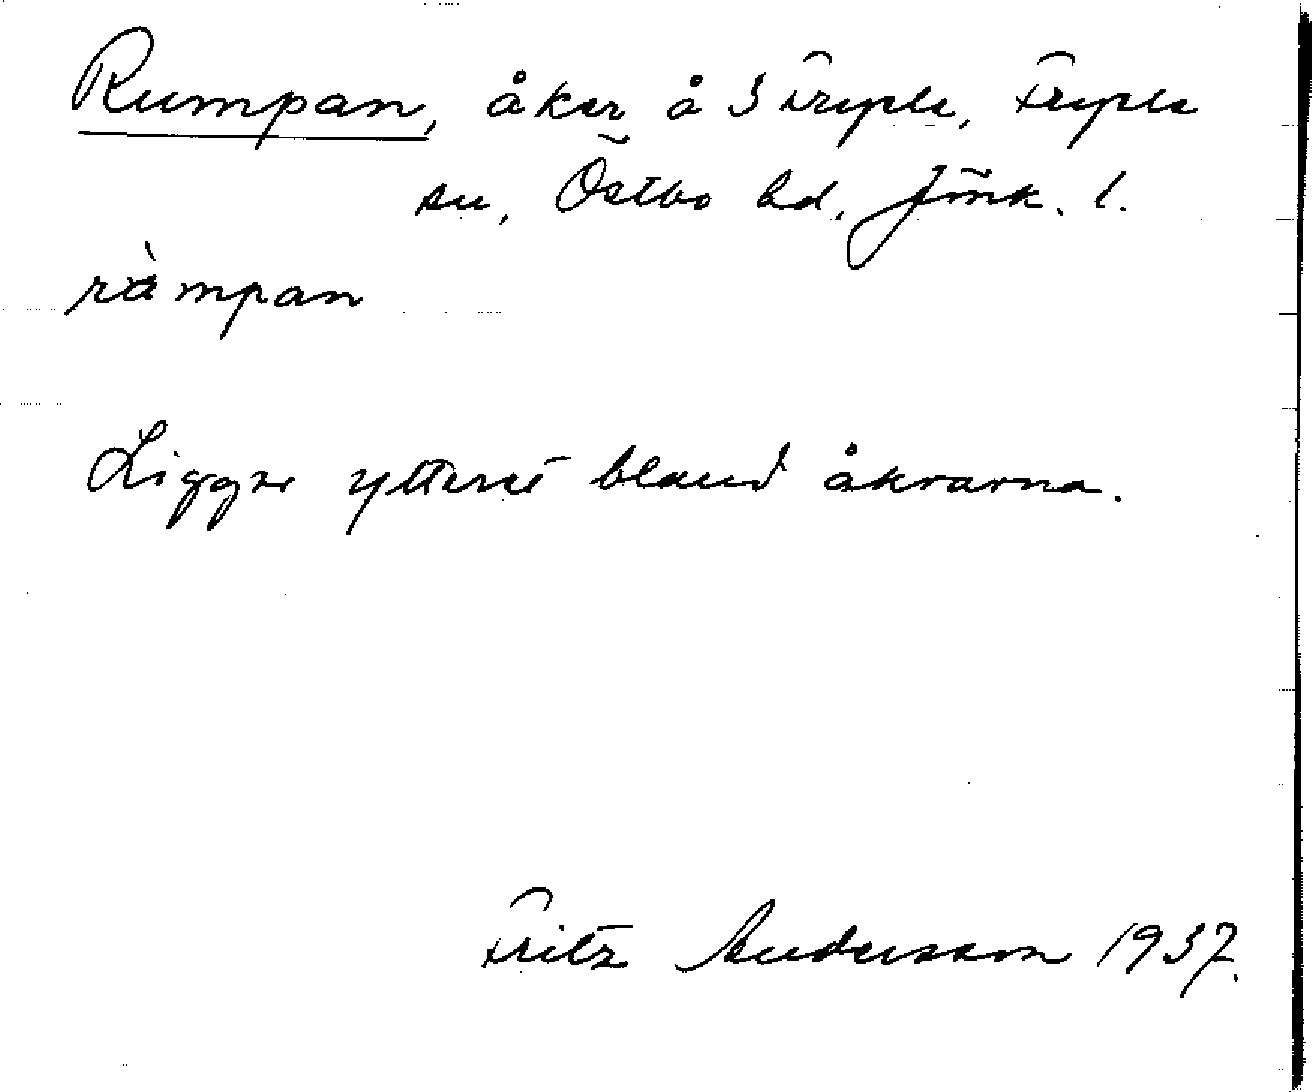 Rumpan, åker å S Fryele, Fryele
sn, Östbo hd, Jönk. l.
ràmpan
Ligger ytterst bland åkrarna.
Fritz Andersson 1937.